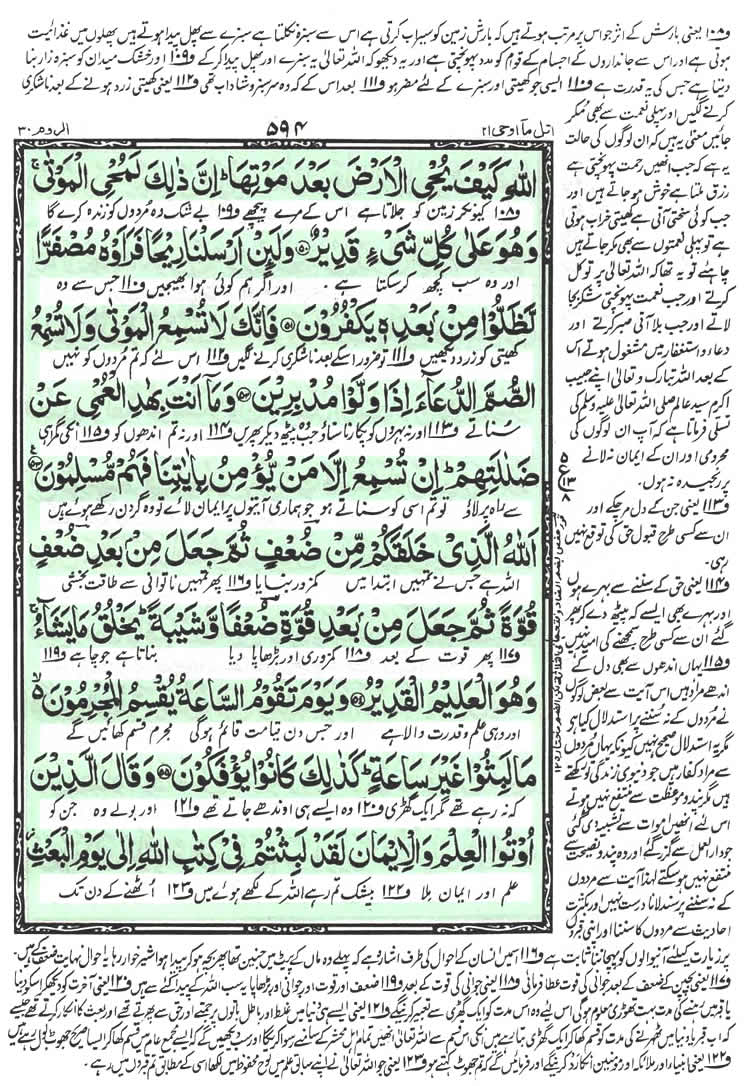 و۱۰۸ یعنی بارش کے اثر جو اس پر مرتب ہوتے ہیں کہ بارش زمین کو سیراب کرتی ہے اس سے سبزہ نکلتا ہے سبزے سے پھل پیدا ہوتے ہیں پھلوں میں غذائیت
ہوتی ہے اور اس سے جانداروں کے اجسام کے قوام کو مدد پہونچتی ہے اور یہ دیکھو کہ اللہ تعالیٰ یہ سبزے اور پھل پیدا کرکے و۱۰۹ اور خشک میدان کو سبزہ زار بنا
دیتا ہے جس کی یہ قدرت ہے و۱۱۰ ایسی جو کھیتی اور سبزے کے لئے مضر ہو و۱۱۱ بعد اس کے کہ وہ سرسبز و شاداب تھی و۱۱۲ یعنی کھیتی زرد ہونے کے بعد ناشکری
کرنے لگیں اور پہلی نعمت سے بھی مُکر
جائیں معنٰی یہ ہیں کہ ان لوگوں کی حالت
یہ ہے کہ جب انھیں رحمت پہونچتی ہے
رزق ملتا ہے خوش ہو جاتے ہیں اور
جب کوئی سختی آتی ہے کھیتی خراب ہوتی
ہے تو پہلی نعمتوں سے بھی مکر جاتے ہیں
چاہئے تو یہ تھا کہ اللہ تعالیٰ پر توکل
کرتے اور جب نعمت پہونچتی شکر بجا
لاتے اور جب بلا آتی صبر کرتے اور
دعاء و استغفار میں مشغول ہوتے اس
کے بعد اللہ تبارک و تعالیٰ اپنے حبیب
اکرم سید عالم صلی اللہ تعالیٰ علیہ وسلم کی
تسلی فرماتا ہے کہ آپ ان لوگوں کی
محرومی اور ان کے ایمان نہ لانے
پر رنجیدہ نہ ہوں۔
و۱۱۳ یعنی جن کے دل مر چکے اور
ان سے کسی طرح قبول حق کی توقع نہیں
رہی۔
و۱۱۴ یعنی حق کے سننے سے بہرے ہوں
اور بہرے بھی ایسے کہ پیٹھ دے کر پھر
گئے ان سے کسی طرح سمجھنے کی امید نہیں
و۱۱۵ یہاں اندھوں سے بھی دل کے
اندھے مراد ہیں اس آیت سے بعض لوگوں
نے مُردوں کے نہ سننے پر استدلال کیا ہے
مگر یہ استدلال صحیح نہیں کیونکہ یہاں مُردوں
سے مراد کفار ہیں جو دنیوی زندگی تو رکھتے
ہیں مگر پند و موعظت سے منتفع نہیں ہوتے
اس لئے انھیں اموات سے تشبیہ دی گئی
جو دار العمل سے گزر گئے اور وہ پند و نصیحت سے
منتفع نہیں ہو سکتے لہٰذا آیت سے مردوں
کے نہ سننے پر سند لانا درست نہیں اور بکثرت
احادیث سے مردوں کا سننا اور اپنی قبروں
اتل مآ اوحی ۲۱
۵۹۴
الروم ۳۰
اللّٰهِ كَيْفَ يُحْيِ الْاَرْضَ بَعْدَ مَوْتِهَا ؕ اِنَّ ذٰلِكَ لَمُحْيِ الْمَوْتٰى ۚ
و۱۰۸ کیونکر زمین کو جلاتا ہے اس کے مرے پیچھے و۱۰۹ بے شک وہ مُردوں کو زندہ کرے گا
وَهُوَ عَلٰى كُلِّ شَيْءٍ قَدِيْرٌ ۝۵۰ وَلَىِٕنْ اَرْسَلْنَا رِيْحًا فَرَاَوْهُ مُصْفَرًّا
اور وہ سب کچھ کرسکتا ہے ۔ اور اگر ہم کوئی ہوا بھیجیں و۱۱۰ جس سے وہ
لَّظَلُّوْا مِنْۢ بَعْدِهٖ يَكْفُرُوْنَ ۝۵۱ فَاِنَّكَ لَا تُسْمِعُ الْمَوْتٰى وَلَا تُسْمِعُ
کھیتی کو زرد دیکھیں و۱۱۱ تو ضرور اسکے بعد ناشکری کرنے لگیں و۱۱۲ اس لئے کہ تم مُردوں کو نہیں
الصُّمَّ الدُّعَآءَ اِذَا وَلَّوْا مُدْبِرِيْنَ ۝۵۲ وَمَآ اَنْتَ بِهٰدِ الْعُمْيِ عَنْ
سناتے و۱۱۳ اور نہ بہروں کو پکارنا سناؤ جب وہ پیٹھ دیکر پھریں و۱۱۴ اور نہ تم اندھوں کو و۱۱۵ انکی گمراہی
ضَلٰلَتِهِمْ ؕ اِنْ تُسْمِعُ اِلَّا مَنْ يُّؤْمِنُ بِاٰيٰتِنَا فَهُمْ مُّسْلِمُوْنَ ۝۵۳
سے راہ پر لاؤ تو تم اسی کو سناتے ہو جو ہماری آیتوں پر ایمان لائے تو وہ گردن رکھے ہوئے ہیں
اَللّٰهُ الَّذِيْ خَلَقَكُمْ مِّنْ ضُعْفٍ ثُمَّ جَعَلَ مِنْۢ بَعْدِ ضُعْفٍ
اللہ ہے جس نے تمہیں ابتدا میں کمزور بنایا و۱۱۶ پھر تمہیں ناتوانی سے طاقت بخشی
قُوَّةً ثُمَّ جَعَلَ مِنْۢ بَعْدِ قُوَّةٍ ضُعْفًا وَّشَيْبَةً ؕ يَخْلُقُ مَا يَشَآءُ ۚ
و۱۱۷ پھر قوت کے بعد و۱۱۸ کمزوری اور بڑھاپا دیا بناتا ہے جو چاہے و۱۱۹
وَهُوَ الْعَلِيْمُ الْقَدِيْرُ ۝۵۴ وَيَوْمَ تَقُوْمُ السَّاعَةُ يُقْسِمُ الْمُجْرِمُوْنَ ۙ
اور وہی علم و قدرت والا ہے اور جس دن قیامت قائم ہوگی مجرم قسم کھائیں گے
مَا لَبِثُوْا غَيْرَ سَاعَةٍ ؕ كَذٰلِكَ كَانُوْا يُؤْفَكُوْنَ ۝۵۵ وَقَالَ الَّذِيْنَ
کہ نہ رہے تھے مگر ایک گھڑی و۱۲۰ وہ ایسے ہی اوندھے جاتے تھے و۱۲۱ اور بولے وہ جن کو
اُوْتُوا الْعِلْمَ وَالْاِيْمَانَ لَقَدْ لَبِثْتُمْ فِيْ كِتٰبِ اللّٰهِ اِلٰى يَوْمِ الْبَعْثِ ؗ
علم اور ایمان ملا و۱۲۲ بیشک تم رہے اللہ کے لکھے ہوئے میں و۱۲۳ اُٹھنے کے دن تک
ع
۵
۱۳
۸
پر زیارت کیلئے آنیوالوں کو پہچاننا ثابت ہے و۱۱۶ اسمیں انسان کے احوال کی طرف اشارہ ہے کہ پہلے وہ ماں کے پیٹ میں جنین تھا پھر بچہ ہو کر پیدا ہوا شیر خوار رہا یہ احوال نہایت ضعف کے ہیں۔
و۱۱۷ یعنی بچپن کے ضعف کے بعد جوانی کی قوت عطا فرمائی و۱۱۸ یعنی جوانی کی قوت کے بعد و۱۱۹ ضعف اور قوت اور جوانی اور بڑھاپا یہ سب اللہ کے پیدا کئے سے ہیں و۱۲۰ یعنی آخرت کو دیکھ کر اسکو دنیا
یا قبر میں رہنے کی مدت بہت تھوڑی معلوم ہوگی اس لئے وہ اس مدت کو ایک گھڑی سے تعبیر کرینگے و۱۲۱ یعنی ایسے ہی دنیا میں غلط اور باطل باتوں پر جمتے اور حق سے پھرتے تھے اور بعث کا انکار کرتے تھے جیسے
و۱۲۲ یعنی انبیاء اور ملائکہ اور مؤمنین ان کا رد کرینگے اور فرمائیں گے کہ تم جھوٹ کہتے ہو و۱۲۳ یعنی جو اللہ تعالیٰ نے اپنے سابق علم میں لوح محفوظ میں لکھا اسی کے مطابق تم قبروں میں رہے۔